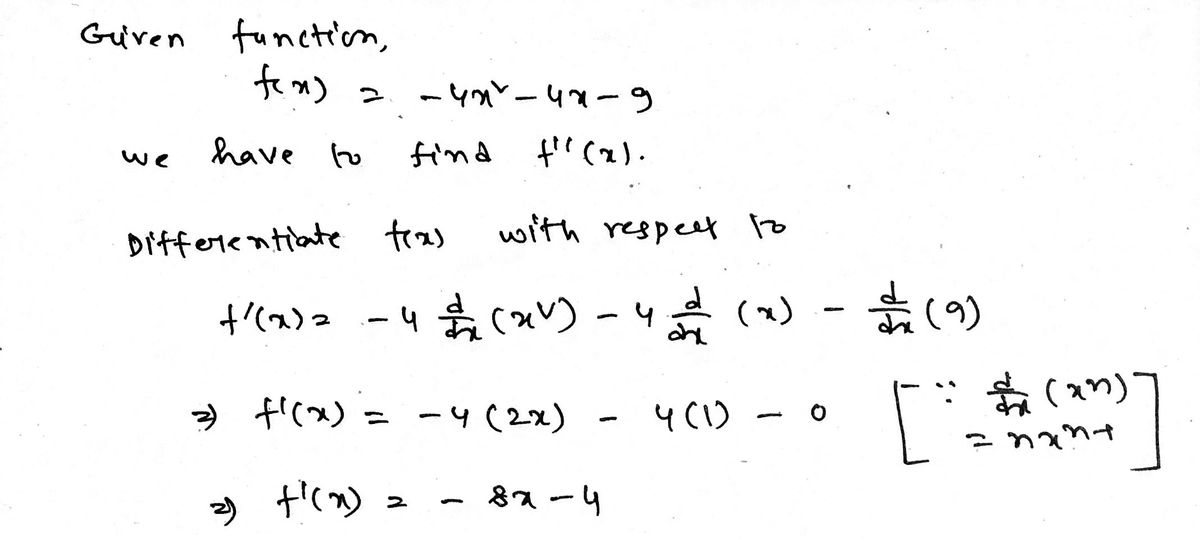 Given function,
f(x) = -4x² - 4x - 9
we have to find f''(x).
Differentiate f(x) with respect to
f'(x) = -4 d/dx (x²) - 4 d/dx (x) - d/dx (9)
⇒ f'(x) = -4 (2x) - 4(1) - 0 [∵ d/dx (xⁿ)
= nxⁿ⁻¹]
⇒ f'(x) = - 8x - 4